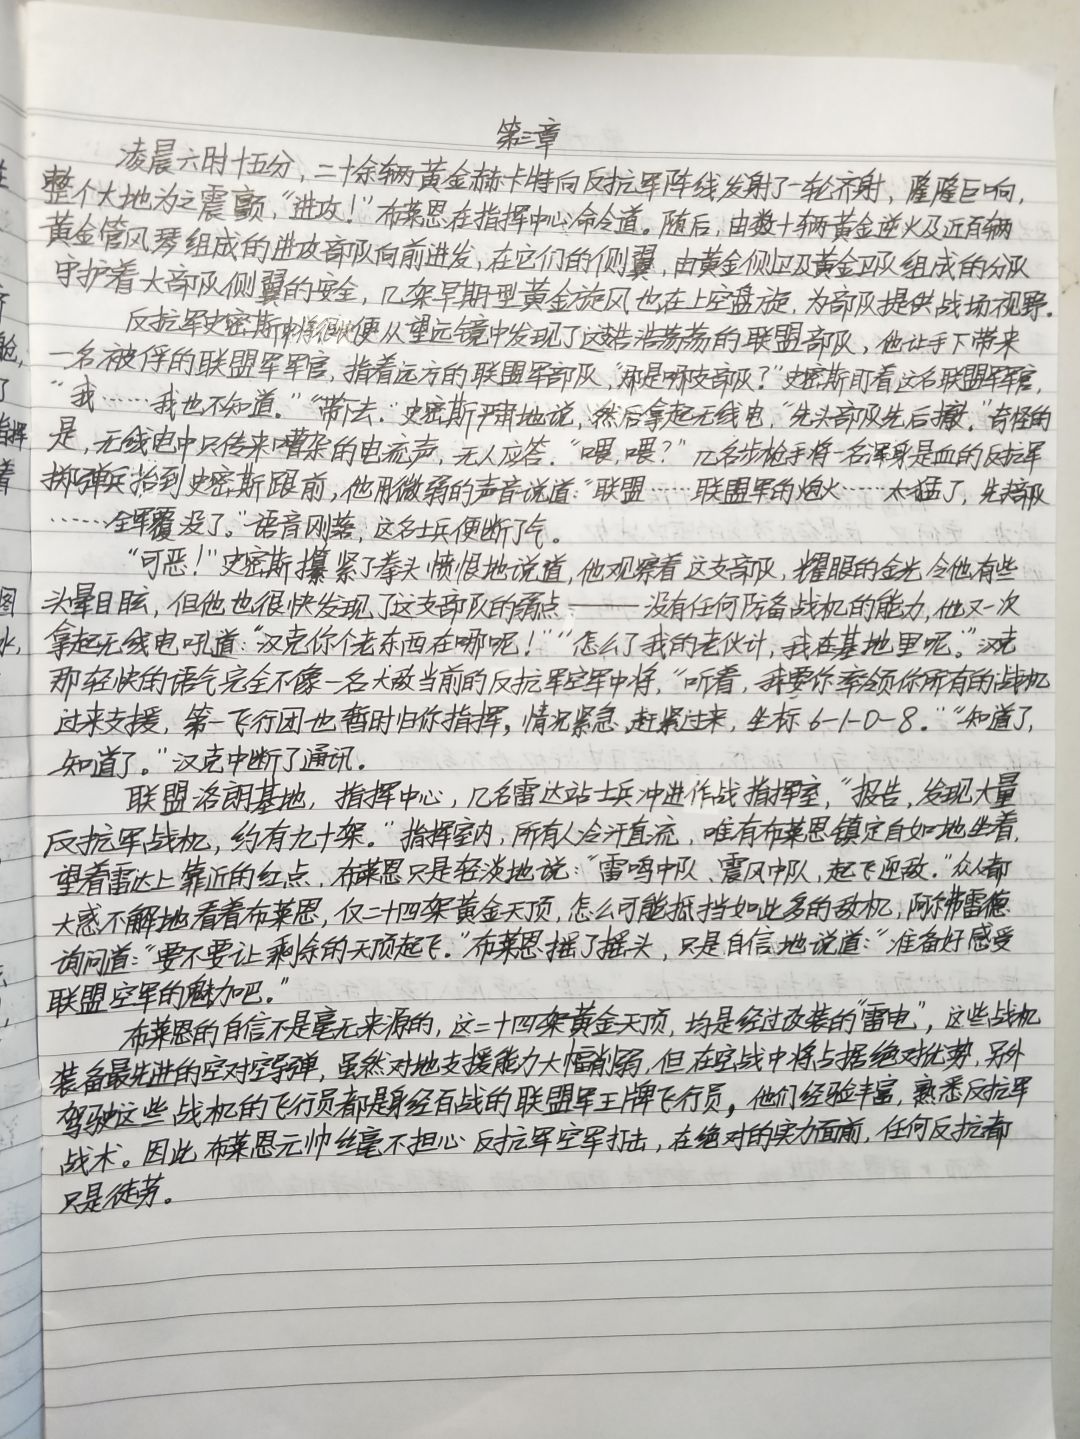 第三章
凌晨六时十五分，二十余辆黄金赫卡特向反抗军阵线发射了一轮齐射，隆隆巨响，
整个大地为之震颤，“进攻！”布莱恩在指挥中心命令道。随后，由数十辆黄金逆火及近百辆
黄金管风琴组成的进攻部队向前进发，在它们的侧翼，由黄金侧卫及黄金卫队组成的分队
守护着大部队侧翼的安全，几架早期型黄金旋风也在上空盘旋，为部队提供战场视野．
反抗军史密斯中将很快便从望远镜中发现了这浩浩荡荡的联盟部队，他让手下带来
一名被俘的联盟军军官，指着远方的联盟军部队，“那是哪支部队？”史密斯盯着这名联盟军军官，
“我……我也不知道．”“带下去．”史密斯严肃地说，然后拿起无线电，“先头部队先后撤．”奇怪的
是，无线电中只传来嘈杂的电流声，无人应答．“喂，喂？”几名步枪手将一名浑身是血的反抗军
掷弹兵抬到史密斯跟前，他用微弱的声音说道：“联盟……联盟军的炮火……太猛了，先头部队
……全军覆没了。”语音刚落，这名士兵便断了气。
“可恶！”史密斯攥紧了拳头愤恨地说道，他观察着这支部队，耀眼的金光令他有些
头晕目眩，但他也很快发现了这支部队的弱点——没有任何防备战机的能力，他又一次
拿起无线电吼道：“汉克你个老东西在哪呢！”“怎么了我的老伙计，我在基地里呢。”汉克
那轻快的语气完全不像一名大敌当前的反抗军空军中将，“听着，我要你率领你所有的战机
过来支援，第一飞行团也暂时归你指挥，情况紧急，赶紧过来，坐标6-1-0-8．”“知道了，
知道了。”汉克中断了通讯．
联盟洛朗基地，指挥中心，几名雷达站士兵冲进作战指挥室，“报告，发现大量
反抗军战机，约有九十架．”指挥室内，所有人冷汗直流，唯有布莱恩镇定自如地坐着，
望着雷达上靠近的红点，布莱恩只是轻淡地说：“雷鸣中队、震风中队，起飞迎敌．”众人都
大惑不解地看着布莱恩，仅二十四架黄金天顶，怎么可能抵挡如此多的敌机，阿尔弗雷德
询问道：“要不要让剩余的天顶起飞．”布莱恩摇了摇头，只是自信地说道：“准备好感受
联盟空军的魅力吧．”
布莱恩的自信不是毫无来源的，这二十四架黄金天顶，均是经过改装的“雷电”，这些战机
装备最先进的空对空导弹，虽然对地支援能力大幅削弱，但在空战中将占据绝对优势，另外
驾驶这些战机的飞行员都是身经百战的联盟军王牌飞行员，他们经验丰富，熟悉反抗军
战术。因此布莱恩元帅丝毫不担心反抗军空军打击，在绝对的实力面前，任何反抗都
只是徒劳。